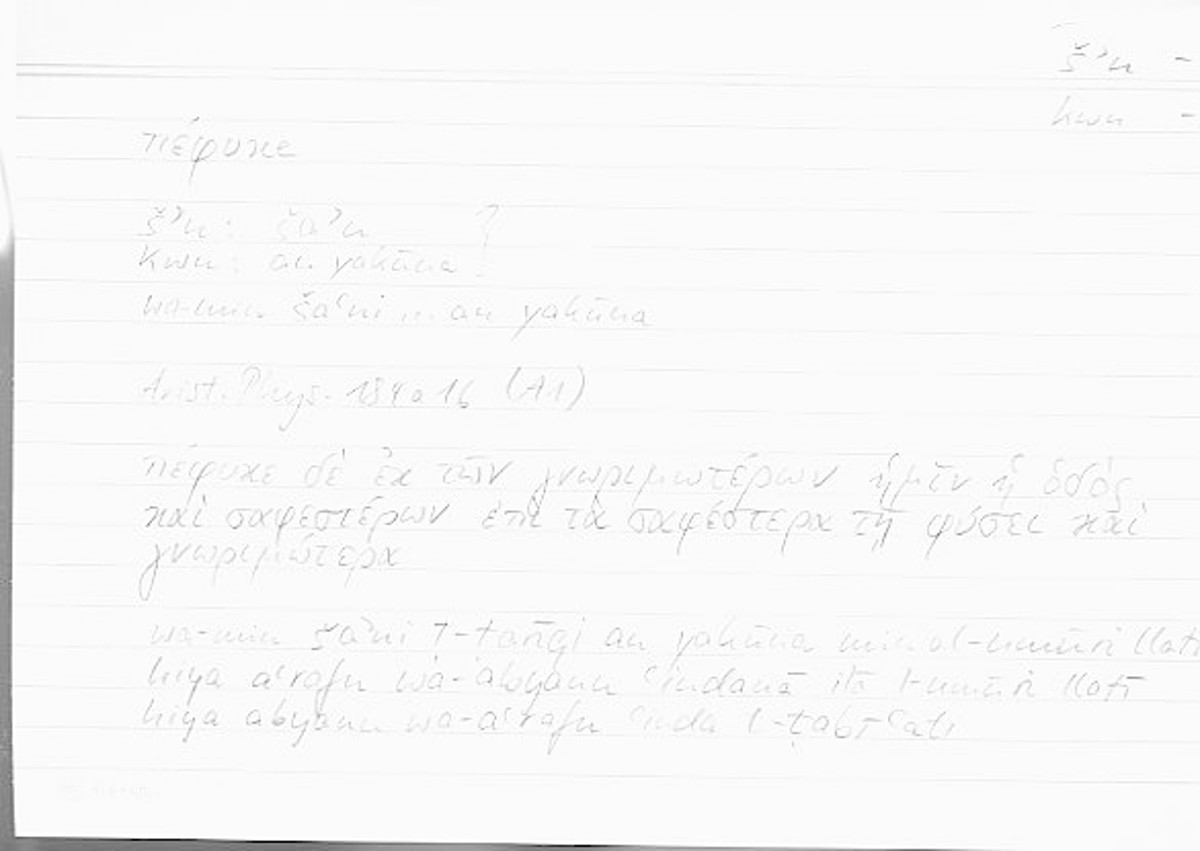 š’n -
kwn -
πέφυκε
š’n: ša’n
kwn: an yakūna
wa-min ša’ni ... an yakūna
Arist. Phys. 184a16 (A1)
πέφυκε δὲ ἐκ τῶν γνωριμωτέρων ἡμῖν ἡ ὁδὸς
καὶ σαφεστέρων ἐπὶ τὰ σαφέστερα τῇ φύσει καὶ
γνωριμώτερα
wa-min ša’ni ṭ-ṭarīqi an yakūna min al-umūri llatī
hiya a‘rafu wa-abyanu ‘indanā ilā l-umūri llatī
hiya abyanu wa-a‘rafu ‘inda l-ṭabī‘ati